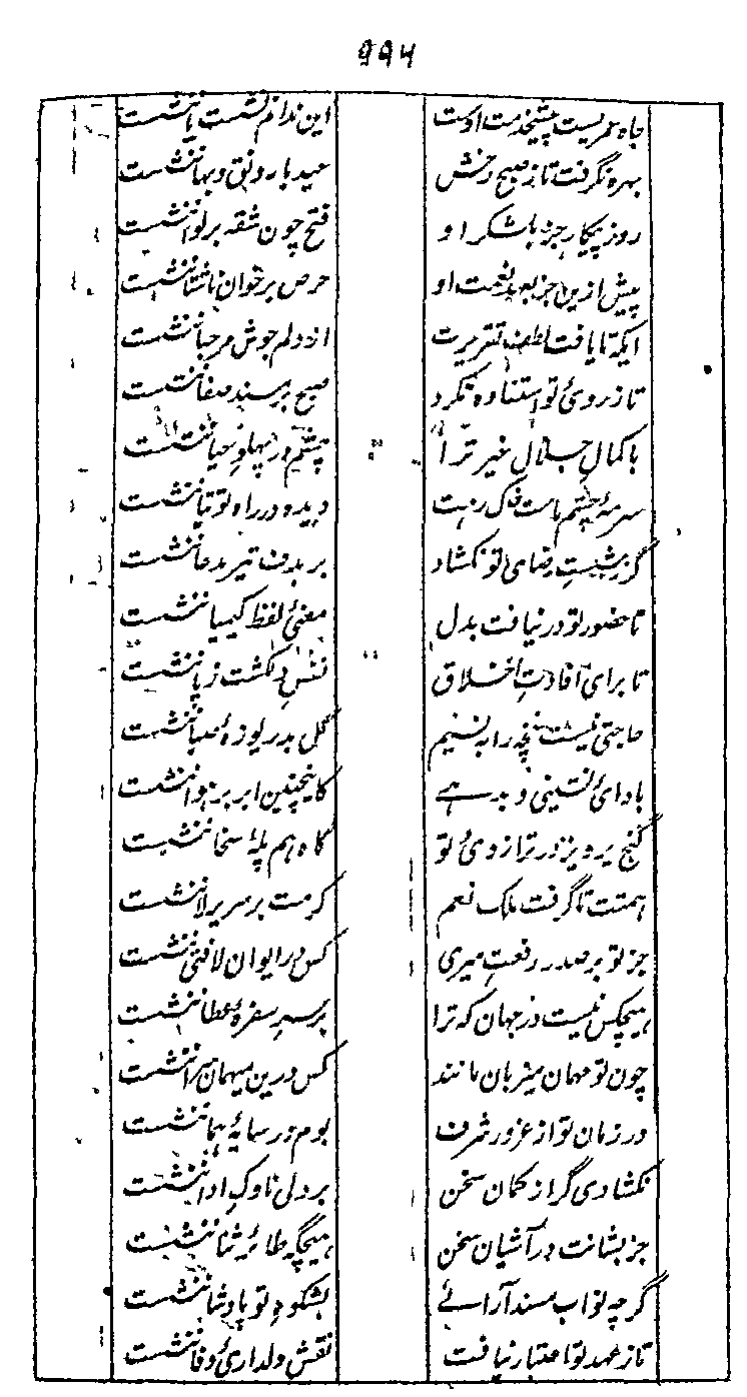 ۹۹۴
جاه عمریست پیشخدمت اوست این ندانم نشست یا ننشست
بهره نگرفت تا ز صبح رخش عید با رونق و بها ننشست
روز پیکار جز بلشکر او فتح چون شقه بر لوا ننشست
پیش ازین جز بعهد نعمت او حرص بر خوان ناشتا ننشست
ایکه تا یافت لطف تقریرت از دلم جوش مرحبا ننشست
تا ز روئ تو استفاده نکرد صبح بر مسند صفا ننشست
با کمال جلال غیر ترا چشم در پهلوِ حیا ننشست
سرمهٔ چشم ماست خاک رهت دیده در راه تو تا ننشست
گرز شستِ رضای تو نکشاد بر هدف تیر مدعا ننشست
تا حضور تو در نیافت بدل معنئ لفظ کیمیا ننشست
تا برای افادتِ اخلاق نفسِ دلکشت ز پا ننشست
حاجتی نیست غنچه را به نسیم گل بدریوزهٔ صبا ننشست
بادائ نشینی و بدہے کاینچنین ابر بر هوا ننشست
گنج پرویز در ترازوئ تو گاه هم پلهٔ سخا ننشست
همتت تا گرفت ملک نعم کرمت بر سریر لا ننشست
جز تو بر صدر رفعتِ میری کس در ایوان لافتی ننشست
هیچکس نیست در جهان که ترا بر سرِ سفرهٔ عطا ننشست
چون تو مهمان میزبان مانند کس درین میهمان سرا ننشست
در زمان تو از غرور شرف بوم در سایهٔ هما ننشست
نکشادی گر از کمان سخن بر دلی ناوکِ ادا ننشست
جز بشانت در آشیان سخن هیچگه طائر ثنا ننشست
گرچه نواب مسند آرائے بشکوهِ تو پادشا ننشست
تا ز عهد تو اعتبار نیافت نقش دلدارئ وفا ننشست